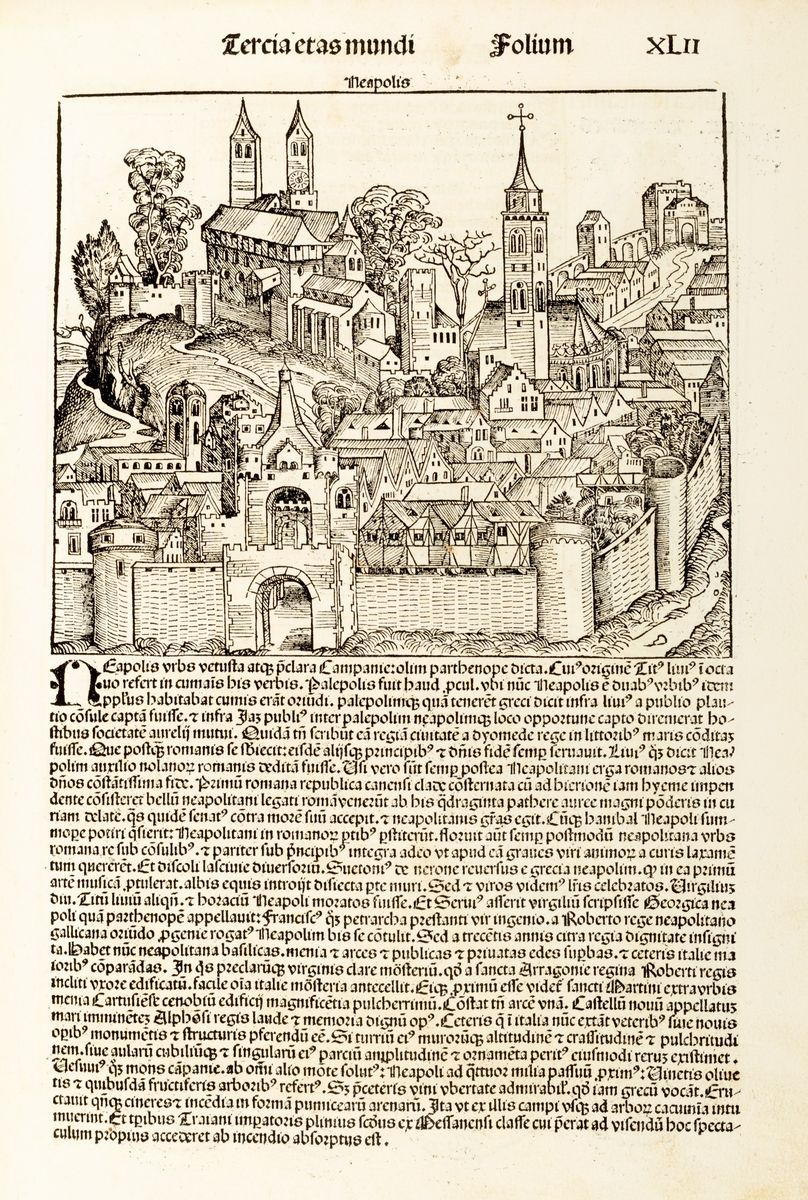 Tercia etas mundi Folium XLII
Neapolis
NEapolis vrbs vetusta atqꝫ p̄clara Campanie: olim parthenope dicta. Cuiꝰ originē Titꝰ liuiꝰ ī octa
uo refert in cumais his verbis. Palepolis fuit haud ꝓcul. vbi nūc Neapolis ē duabꝰ vrbibꝰ idem
pplus habitabat cumis erāt oriūdi. palepolimqꝫ quā tenerēt greci dicit infra liuiꝰ a publio plau-
tio cōsule captā fuisse. ⁊ infra Iaꝫ publiꝰ inter palepolim neapolimqꝫ loco opportune capto diremerat ho-
stibus societatē aurelij mutui. Quidā tn̄ scribūt eā regiā ciuitatē a dyomede rege in littoribꝰ maris cōditaꝫ
fuisse. Que postqꝫ romanis se sbiecit: eisdē alijsqꝫ principibꝰ ⁊ dn̄is fidē semꝑ seruauit. Liuiꝰ qꝫ dicit Nea-
polim auxilio nolanoꝝ romanis deditā fuisse. Usi vero sūt semꝑ postea Neapolitani erga romanos ⁊ alios
dn̄os cōstātissima fide. Primū romana republica canensi clade cōsternata cū ad hierionē iam hyeme impen
dente cōsisteret bellū neapolitani legati romā venerūt ab his qdraginta pathere auree magni pōderis in cu
riam delate. qs quidē senatꝰ cōtra morē suū accepit. ⁊ neapolitanis gr̄as egit. Cūqꝫ hanibal Neapoli sum-
mope potiri qsierit: Neapolitani in romanoꝝ ptibꝰ pstiterūt. floruit aūt semꝑ postmodū neapolitana vrbs
romana re sub cōsulibꝰ. ⁊ pariter sub p̄ncipibꝰ integra adeo vt apud eā graues viri animoꝝ a curis laxamē
tum quererēt. Et discoli lasciuie diuersoriū. Suetoniꝰ de nerone reuersus e grecia neapolim. qꝫ in ea primū
artē musicā ꝓtulerat. albis equis introijt disiecta pte muri. Sed ⁊ viros videmꝰ lr̄is celebratos. Uirgiliuꝫ
diu. Titū liuiū aliqn̄. ⁊ horaciū Neapoli moratos fuisse. Et Seruiꝰ asserit virgiliū scripsisse Georgica nea
poli quā parthenopē appellauit: Franciscꝰ qꝫ petrarcha prestanti vir ingenio. a Roberto rege neapolitano
gallicana oriūdo ꝓgenie rogatꝰ Neapolim bis se cōtulit. Sed a trecētis annis citra regia dignitate insigni
ta. Habet nūc neapolitana basilicas. menia ⁊ arces ⁊ publicas ⁊ priuatas edes suꝑbas. ⁊ ceteris italie ma
ioribꝰ cōparādas. In qs preclarūqꝫ virginis clare mōsteriū. qd̄ a sancta Arragonie regina Roberti regis
incliti vxore edificatū. facile oīa italie mōsteria antecellit. Eiqꝫ ꝓximū esse videt̄ sancti Martini extra vrbis
menia Cartusiēse cenobiū edificij magnificētia pulcherrimū. Cōstat tn̄ arcē vnā. Castellū nouū appellatuꝫ
mari imminētez Alphōsi regis laude ⁊ memoria dignū opꝰ. Ceteris q ī italia nūc extāt veteribꝰ siue nouis
oꝑibꝰ monumētis ⁊ structuris pferendū eē. Si turriū eiꝰ muroꝝqꝫ altitudinē ⁊ crassitudinē ⁊ pulchritudi
nem. siue aularū cubiliūqꝫ ⁊ singularū eiꝰ parciū amplitudinē ⁊ ornamēta peritꝰ eiusmodi reruꝫ existimet.
Uesuuiꝰ qꝫ mons cāpanie. ab omī alio mōte solutꝰ: Neapoli ad qttuor milia passuū ꝓximꝰ: Uinetis oliue
tis ⁊ quibusdā fructiferis arboribꝰ refertꝰ. Sꝫ p̄ceteris vini vbertate admirabil̓. qd̄ iam grecū vocāt. Eru-
ctauit qn̄qꝫ cineres ⁊ incēdia in formā pumicearū arenarū. Ita vt ex illis campi vsqꝫ ad arboꝝ cacumīa intu
muerint. Et tꝑibus Traiani imꝑatoris plinius scd̄us ex Messanensi classe cui p̄erat ad visendū hoc specta-
culum propius accederet ab incendio absorptus est.